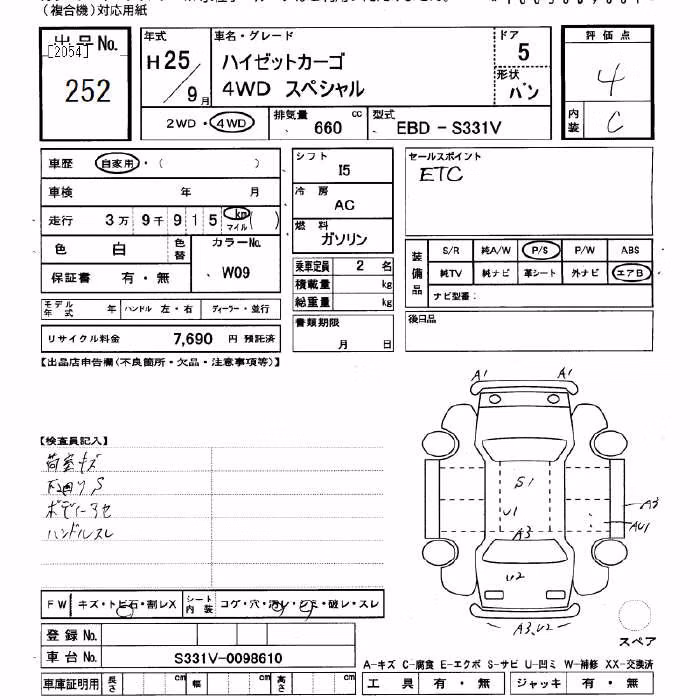 (複合機)対応用紙
出品No.
[2054]
252
年式
H25/9月
車名・グレード
ハイゼットカーゴ
4WD スペシャル
ドア
5
形状
バン
評価点
4
内装
C
2WD・4WD
排気量
660 cc
型式
EBD-S331V
車歴 自家用・( )
車検 年 月
走行 3万9千915 km マイル ( )
色 白 色替
カラーNo.
W09
保証書 有・無
モデル年式 年 ハンドル 左・右 ディーラー・並行
リサイクル料金 7,690 円 預託済
シフト
I5
冷房
AC
燃料
ガソリン
乗車定員 2 名
積載量 kg
総重量 kg
書類期限
月 日
セールスポイント
ETC
装備品
S/R 純A/W P/S P/W ABS
純TV 純ナビ 革シート 外ナビ エアB
ナビ型番:
後日品
【出品店申告欄(不良箇所・欠品・注意事項等)】
【検査員記入】
荷室キズ
下廻りS
ボデーヨセ
ハンドルスレ
A1 A1
S1
U1
A3
A3
AU1
U2
A3,U2
スペア
FW キズ・トビ石・割レX
シート内装 コゲ・穴・汚レ・シミ・破レ・スレ
登録No.
車台No. S331V-0098610
車庫証明用 長さ cm 幅 cm 高さ cm
A-キズ C-腐食 E-エクボ S-サビ U-凹ミ W-補修 XX-交換済
工具 有・無 ジャッキ 有・無